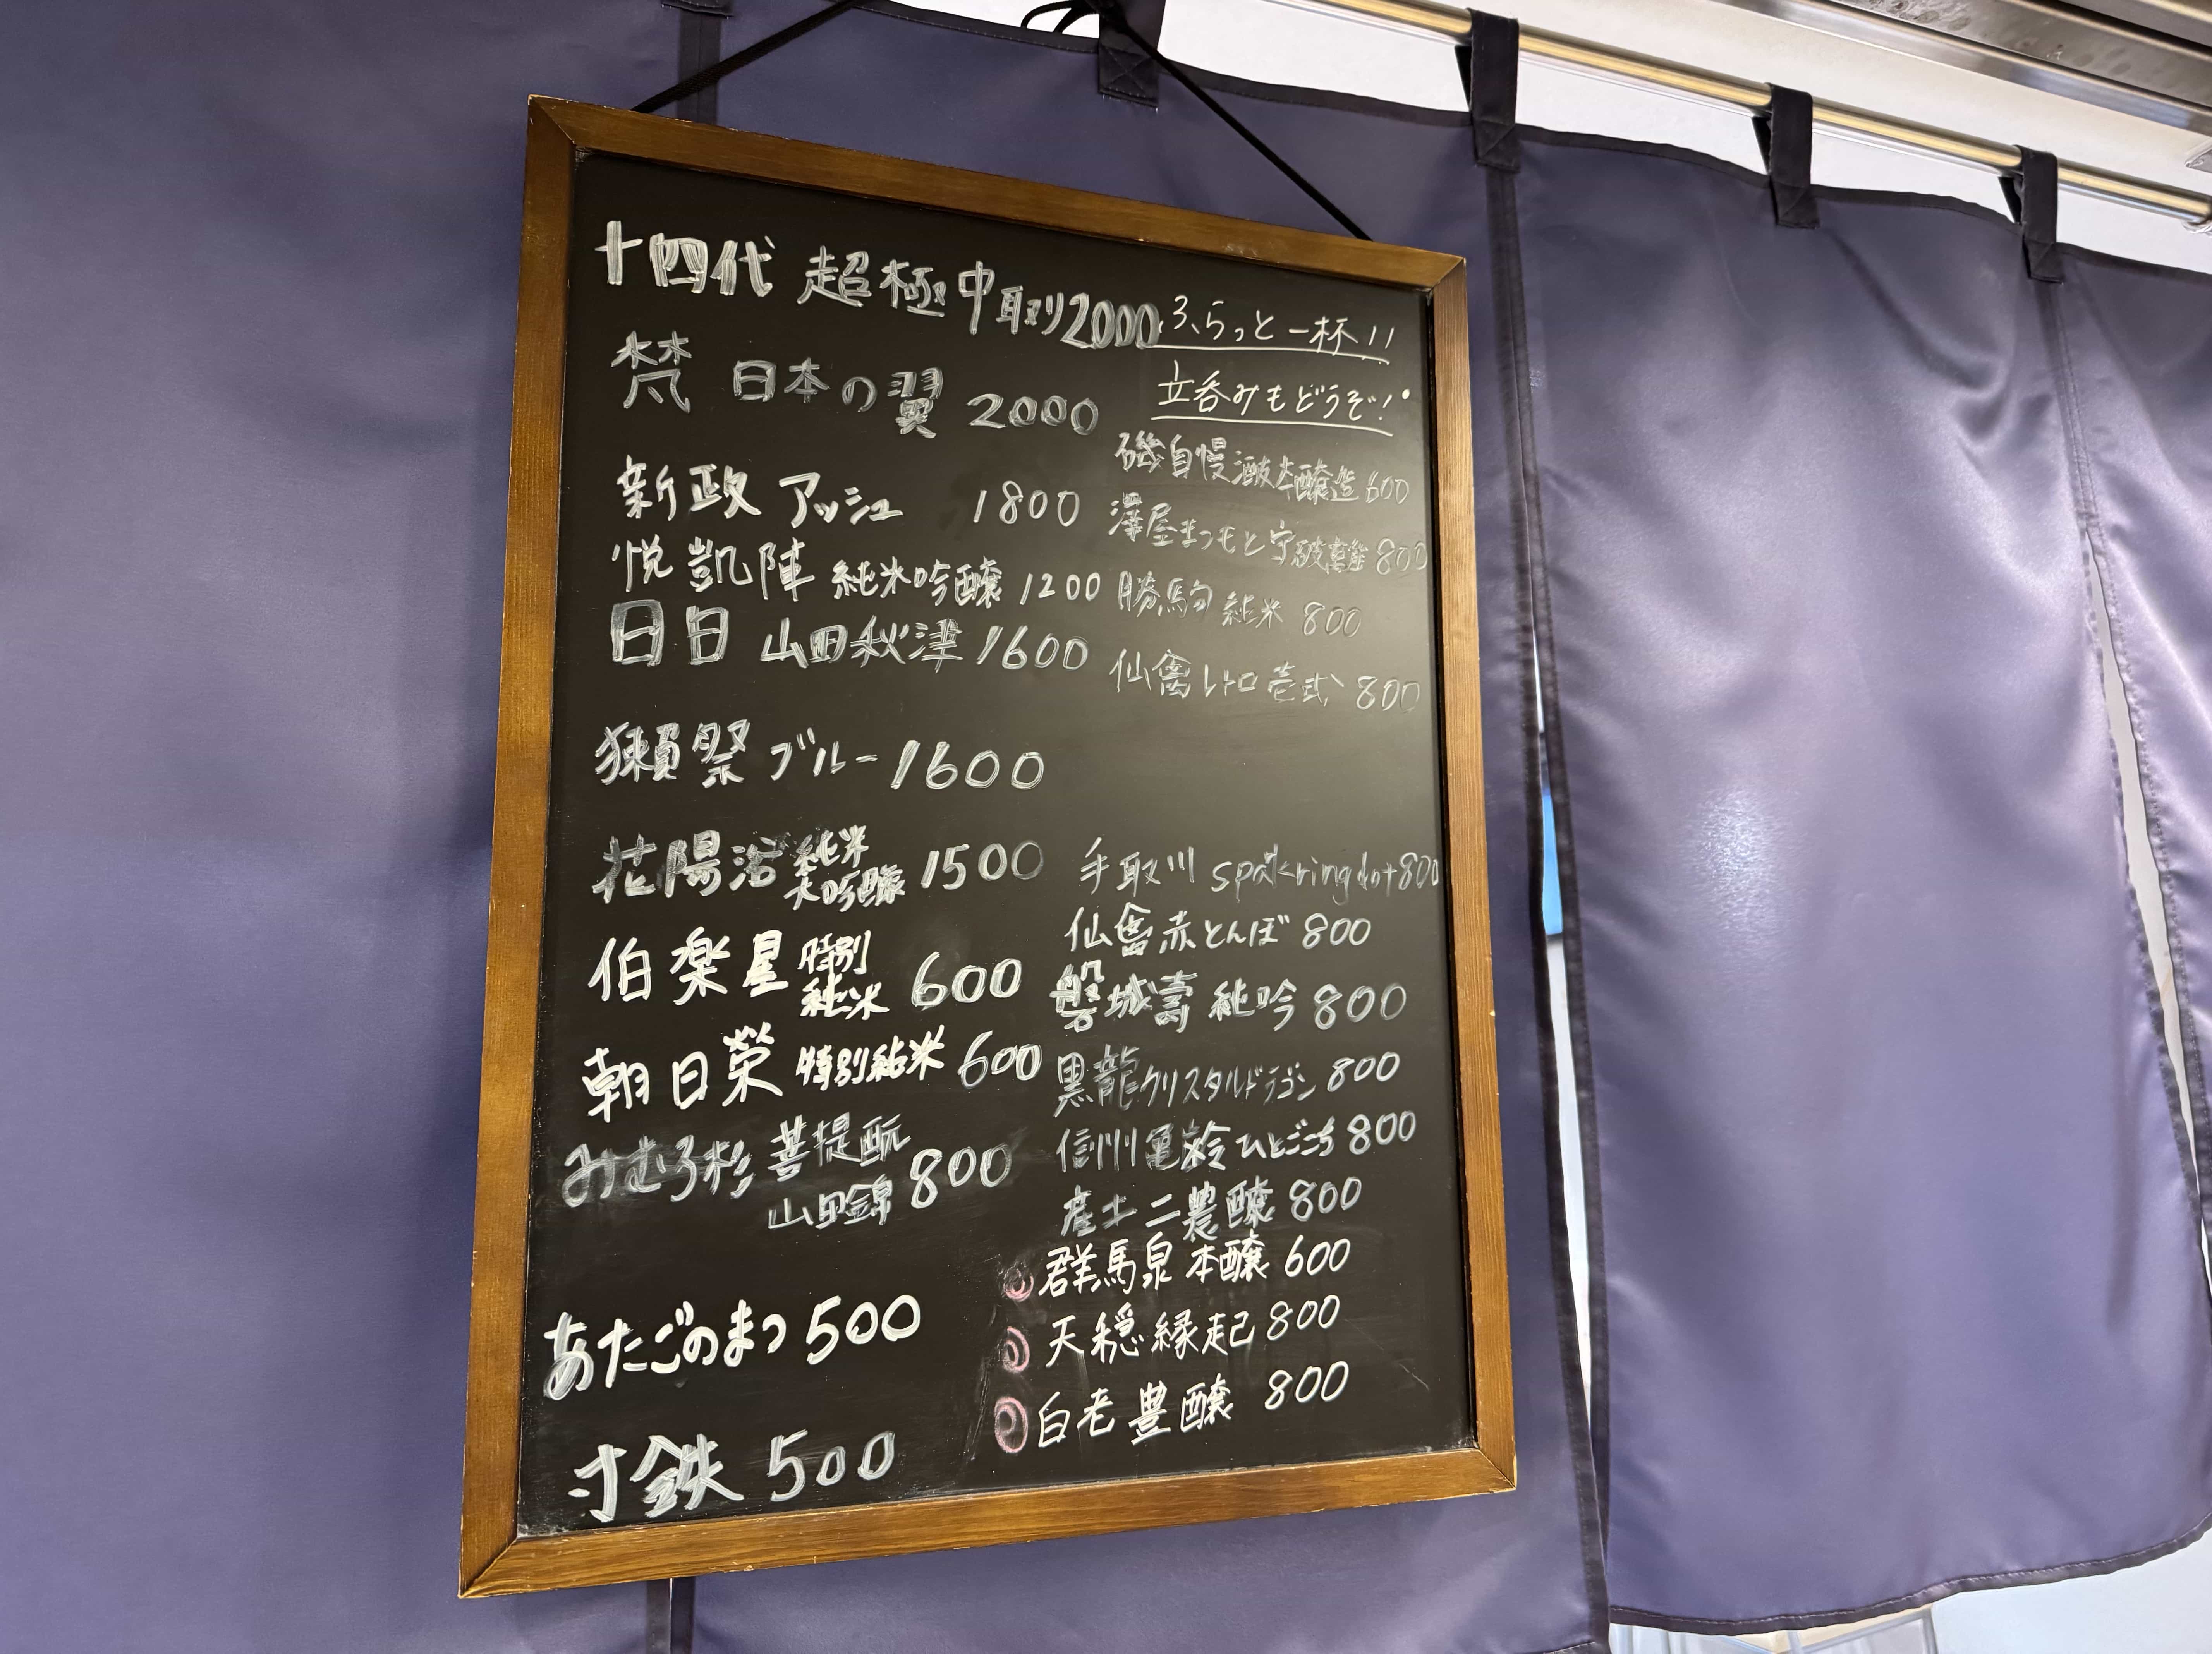 十四代 超極 中取り 2000
梵 日本の翼 2000
新政 アッシュ 1800
悦凱陣 純米吟醸 1200
日日 山田秋津 1600
獺祭 ブルー 1600
花陽浴 純米
大吟醸 1500
伯楽星 特別
純米 600
朝日榮 特別純米 600
みむろ杉 菩提酛
山田錦 800
あたごのまつ 500
寸鉄 500
ふらっと一杯!!
立呑みもどうぞ!
磯自慢 本醸造 600
澤屋まつもと守破離 800
勝駒 純米 800
仙禽レトロ 壱式 800
手取川 spakring dot 800
仙禽 赤とんぼ 800
磐城壽 純吟 800
黒龍クリスタルドラゴン 800
信州亀齢ひとごこち 800
産土 二農醸 800
群馬泉 本醸 600
天穏 縁起 800
白老 豊醸 800